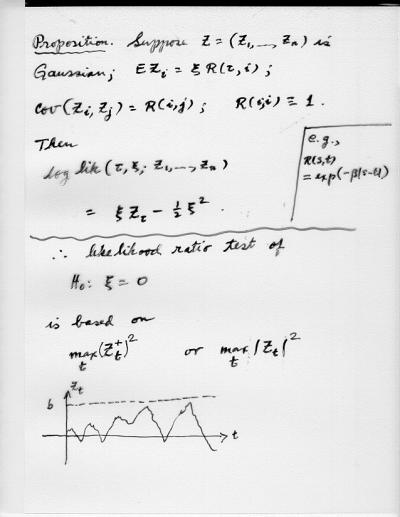 Proposition. Suppose Z = (Z₁, ..., Zₙ) is
Gaussian; E Zᵢ = ξ R(τ, i) ;
cov(Zᵢ, Zⱼ) = R(i,j) ; R(i,i) ≡ 1 .
Then
log lik (τ, ξ; Z₁, ..., Zₙ)
= ξ Z_τ − ½ ξ² .
e.g.,
R(s,t)
= exp(−β|s−t|)
∴ likelihood ratio test of
H₀: ξ = 0
is based on
max_t (Z_t⁺)² or max_t |Z_t|²
Z_t
b
t